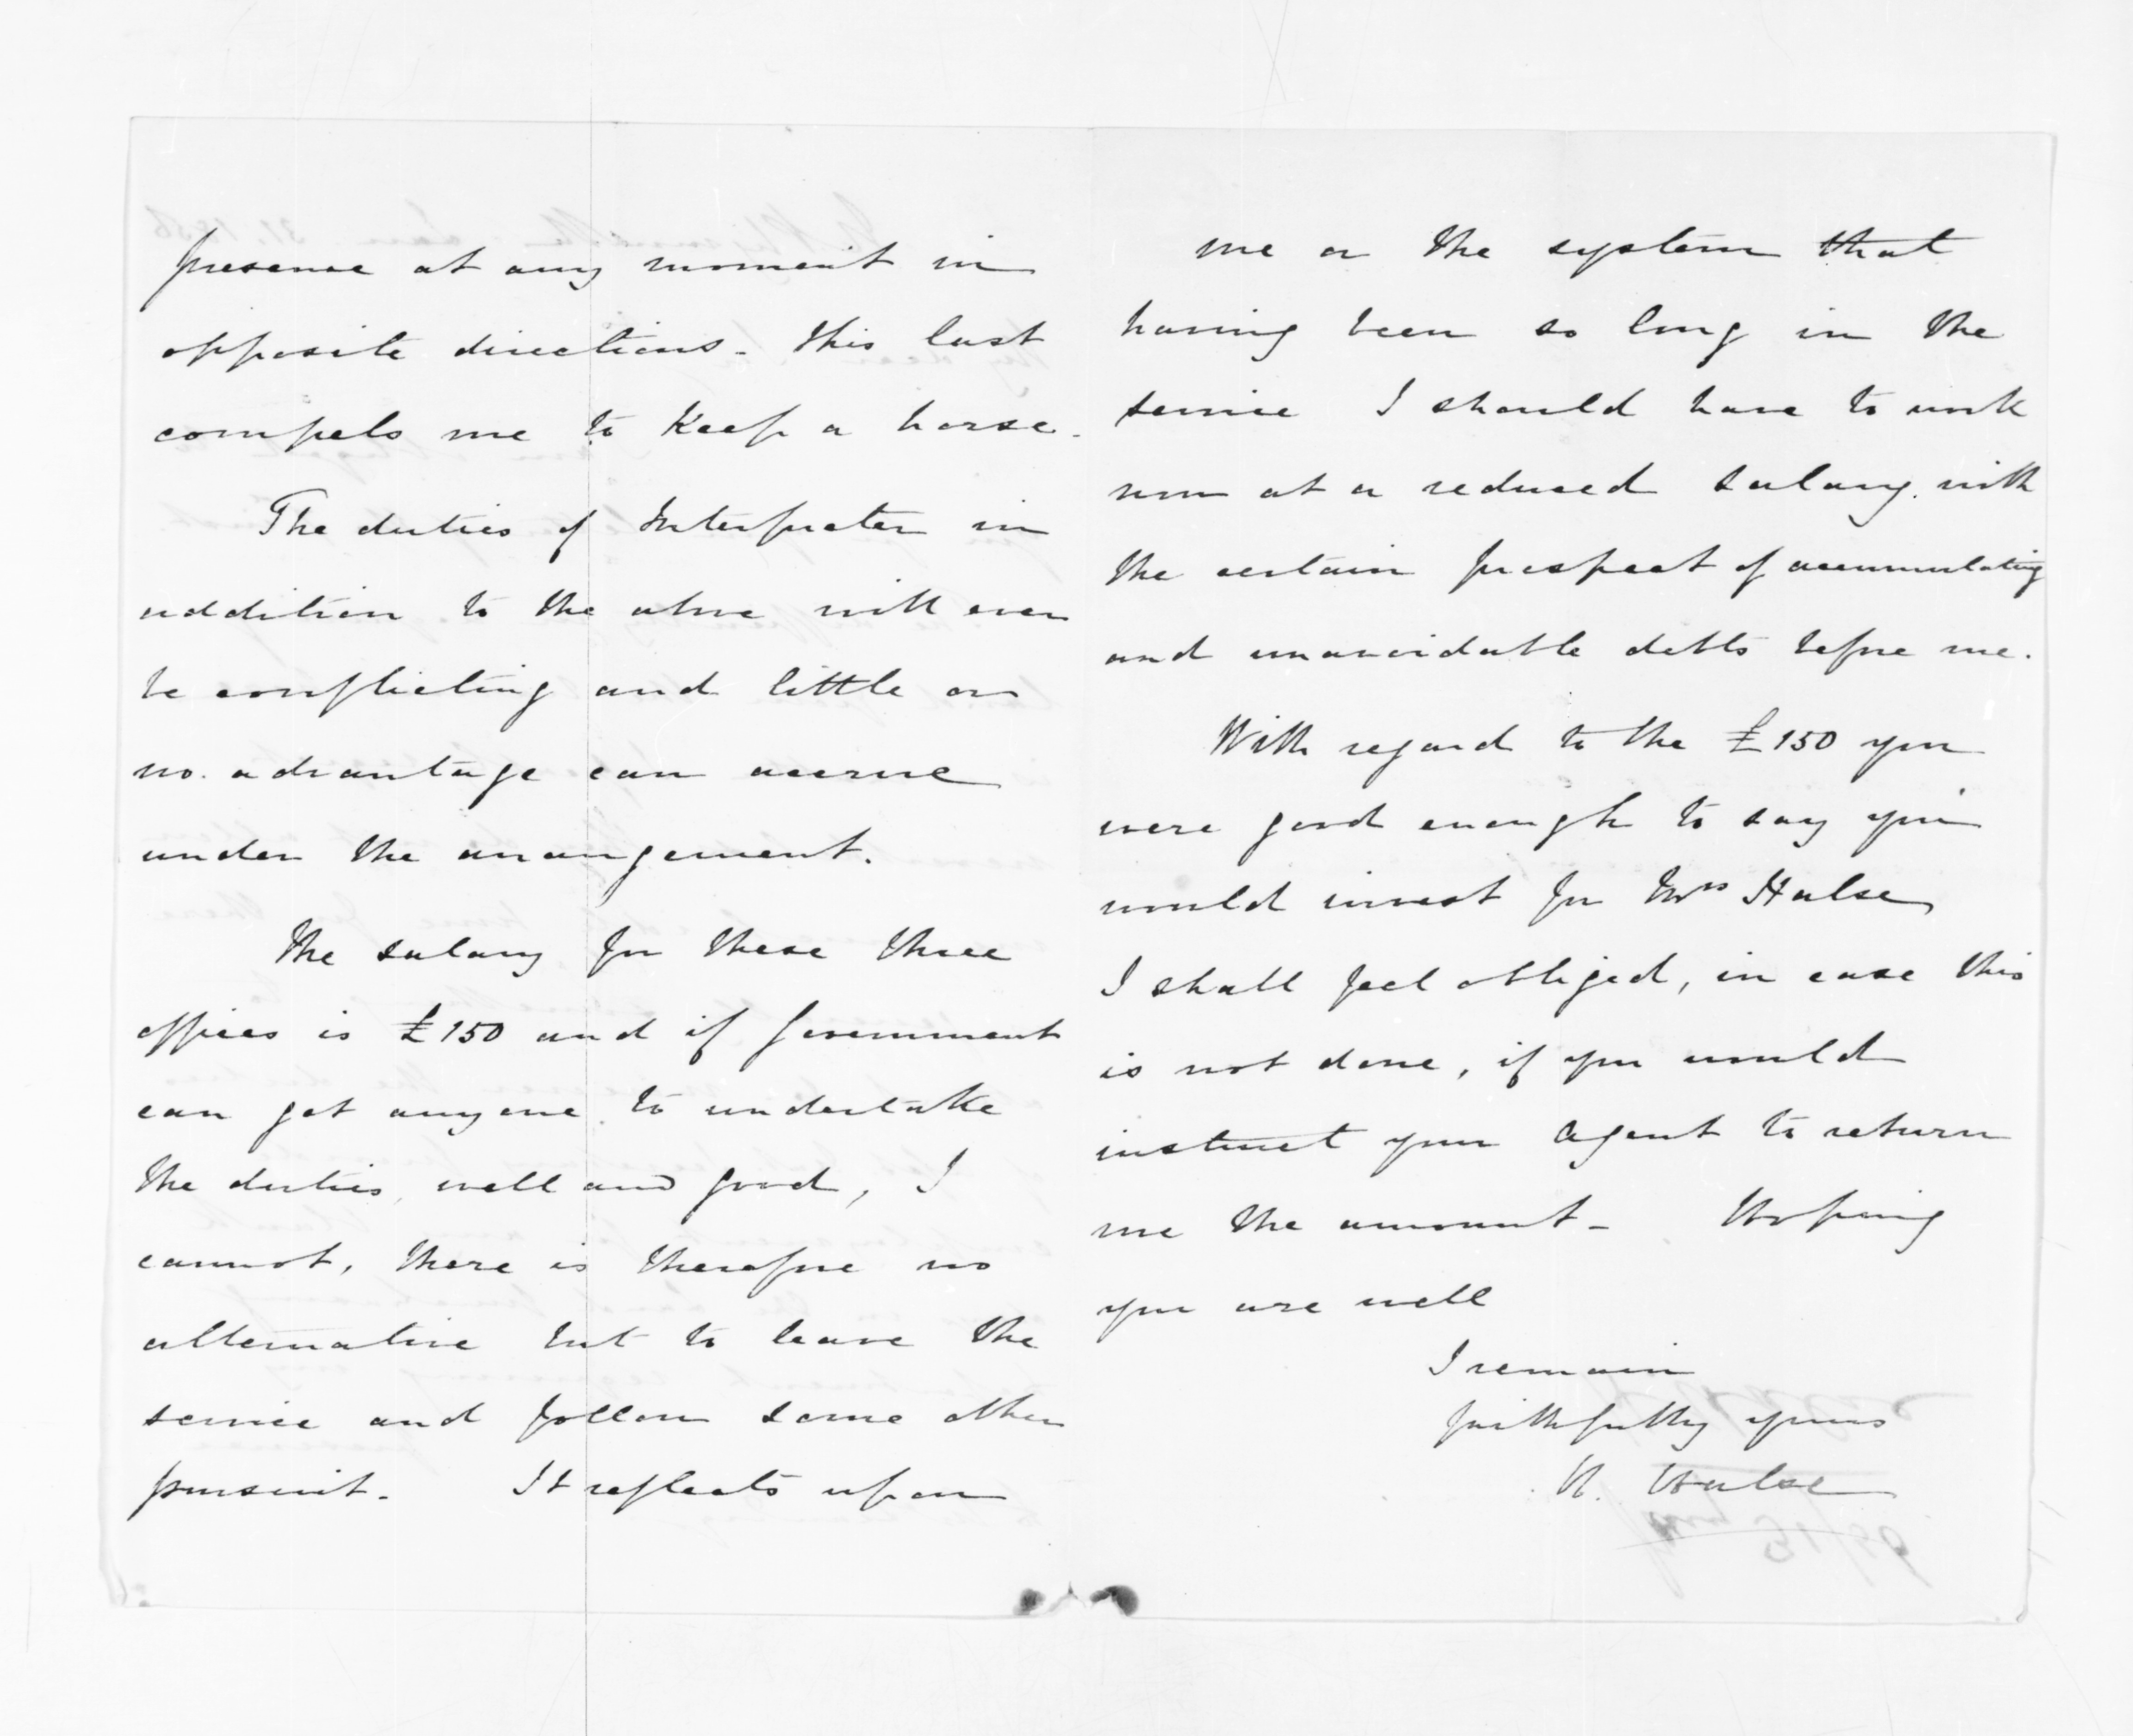 presence at any moment in
opposite directions. This last
compels me to keep a horse.
The duties of Interpreter in
addition to the above will ever
be conflicting and little or
no advantage can accrue
under the arrangement.
The salary for these three
offices is £150 and if Government
can get anyone to undertake
the duties, well and good, I
cannot, there is therefore no
alternative but to leave the
service and follow some other
pursuit. It reflects upon
me or the system that
having been so long in the
service I should have to work
now at a reduced salary with
the certain prospect of accumulating
and unavoidable debts before me.
With regard to the £150 you
were good enough to say you
would invest for Mrs Halse
I shall feel obliged, in case this
is not done, if you would
instruct your Agent to return
me the amount - Hoping
you are well
I remain
faithfully yours
H. Halse